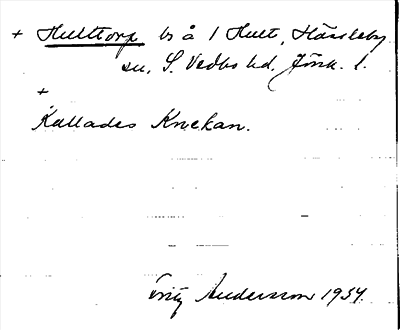 + Hulttorp bs å 1 Hult, Hässleby
sn, S. Vedbo hd, Jönk. l.
+
Kallades Knekan.
Fritz Andersson 1934.